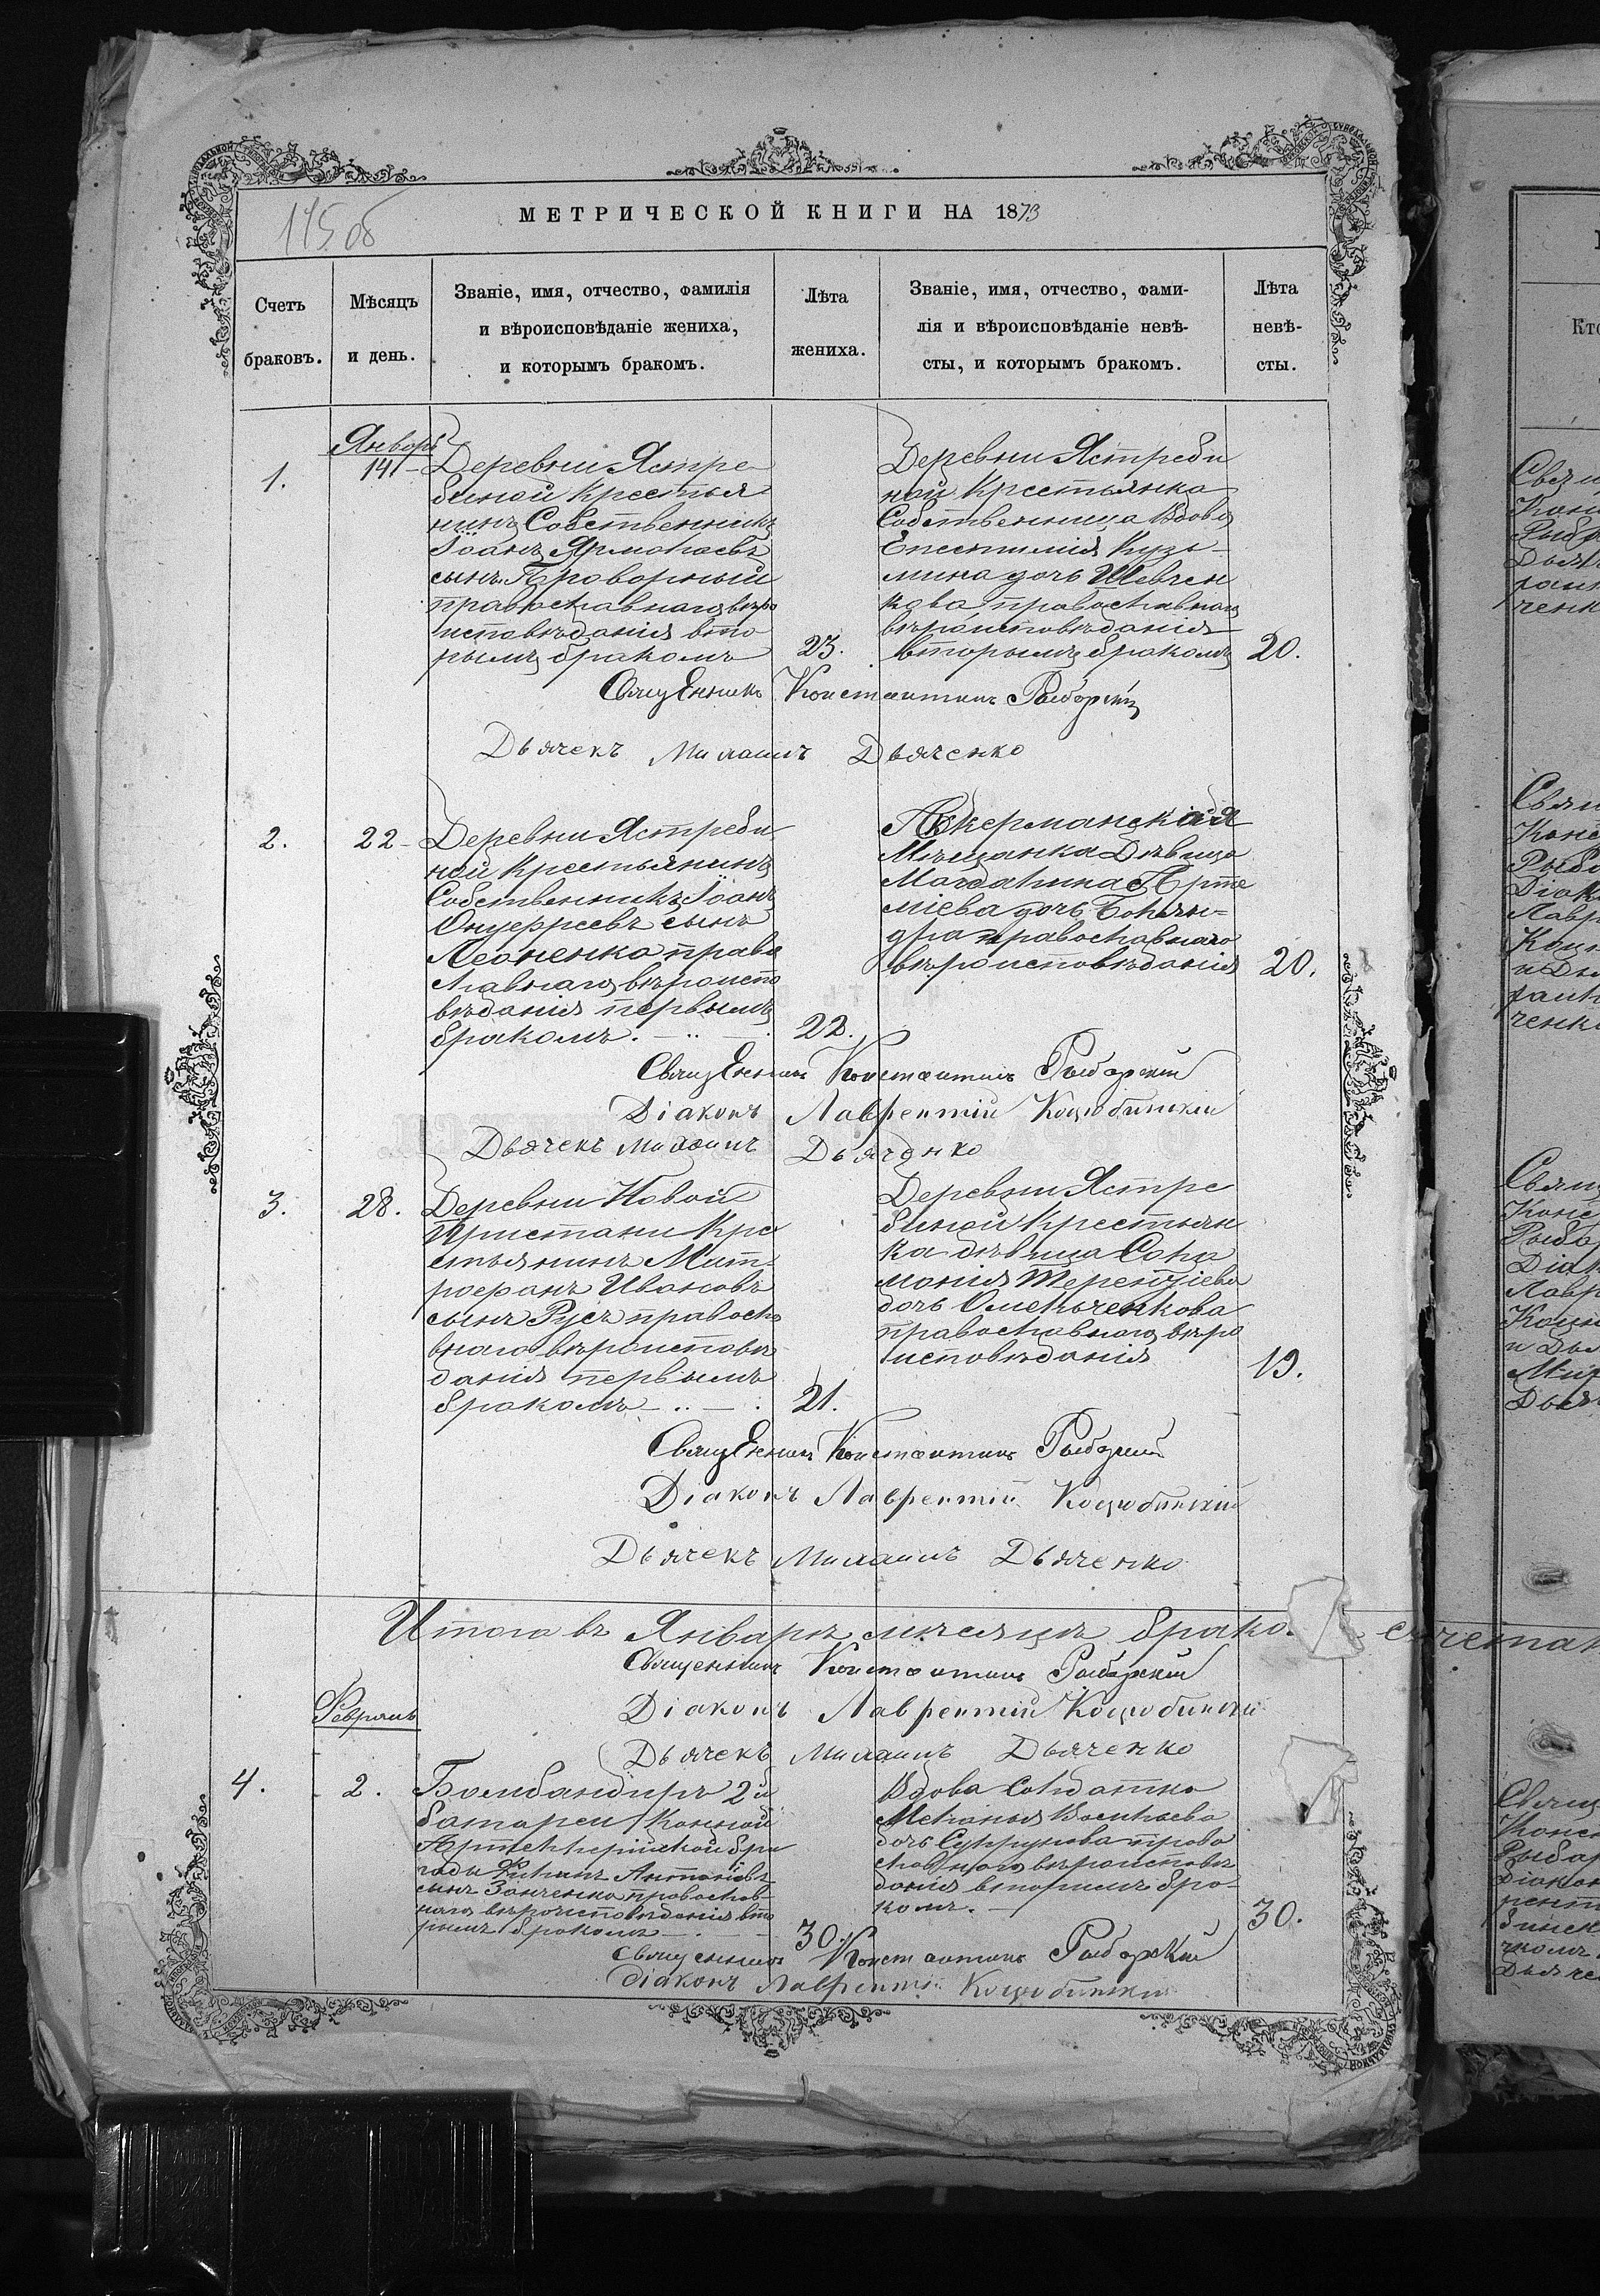 115 об
МЕТРИЧЕСКОЙ КНИГИ НА 1873
Счетъ браковъ.
Мѣсяцъ и день.
Званіе, имя, отчество, фамилія
и вѣроисповѣданіе жениха,
и которымъ бракомъ.
Лѣта
жениха.
Званіе, имя, отчество, фами-
лія и вѣроисповѣданіе невѣ-
сты, и которымъ бракомъ.
Лѣта
невѣ-
сты.
Январь
1.
14
Деревни Ястре
биной Крестья
нинъ Собственникъ
Іоанъ Ярмолаевъ
сынъ Проворный
православнаго вѣро
исповѣданія вто
рымъ бракомъ
23.
Деревни Ястреби
ной Крестьянка
Собственница Вдова
Епистимія Кузь-
мина дочь Шевчен
кова православнаго
вѣроисповѣданія
вторымъ бракомъ
20.
Священникъ Константинъ Рыбарскій
Дьячекъ Михаилъ Дьяченко
2.
22
Деревни Ястреби
ной Крестьянинъ
Собственникъ Іоанъ
Онуфріевъ сынъ
Леоненко право
славнаго вѣроиспо
вѣданія первымъ
бракомъ.
22.
Аккерманская
Мѣщанка Дѣвица
Магдалина Арте
міева дочь
православнаго
вѣроисповѣданія
20.
Священникъ Константинъ Рыбарскій
Діаконъ Лаврентій Коцюбинскій
Дьячекъ Михаилъ Дьяченко
3.
28.
Деревни Новой
Пристани Кре
стьянинъ Мит-
рофанъ Ивановъ
сынъ Русъ правосла
внаго вѣроисповѣ
данія первымъ
бракомъ
21.
Деревни Ястре
биной Крестьян
ка дѣвица Соло
монія Терентіева
дочь Омельченкова
православнаго вѣро
исповѣданія
19.
Священникъ Константинъ Рыбарскій
Діаконъ Лаврентій Коцюбинскій
Дьячекъ Михаилъ Дьяченко
Итого въ Январѣ мѣсяцѣ брако
Священникъ Константинъ Рыбарскій
Діаконъ Лаврентій Коцюбинскій
Дьячекъ Михаилъ Дьяченко
Февраль
4.
2.
Бомбандиръ 2й
батареи Конной
Артиллерійской бри
гады Филипъ Антоніевъ
сынъ Занченко православ-
наго вѣроисповѣданія вто
рымъ бракомъ
30.
Вдова Солдатка
Меланья Васильева
дочь Супрунова право
славнаго вѣроисповѣ
данія вторымъ бра-
комъ.
30.
Священникъ Константинъ Рыбарскій
Діаконъ Лаврентій Коцюбинскій